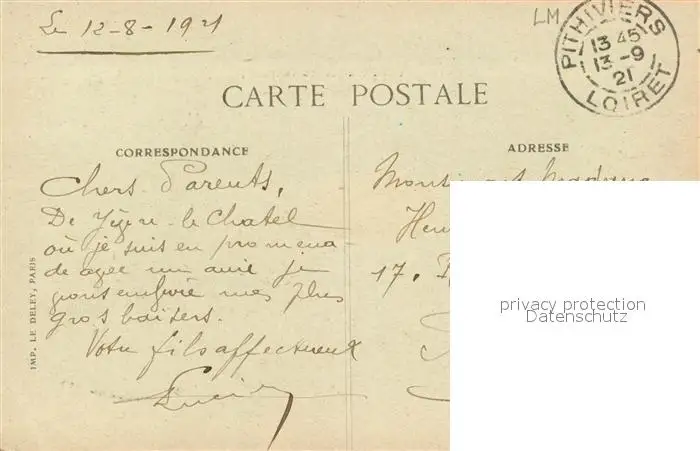 Le 12-8-1921
LM
PITHIVIERS
13 45
13 -9
21
LOIRET
CARTE POSTALE
CORRESPONDANCE
ADRESSE
Chers Parents,
De Yèvre-le-Chatel
où je suis en promena-
de avec un ami je
vous envoie mes plus
gros baisers.
Votre fils affectueux
Lucien
Monsieur et Madame
17,
IMP. LE DELEY, PARIS
privacy protection
Datenschutz